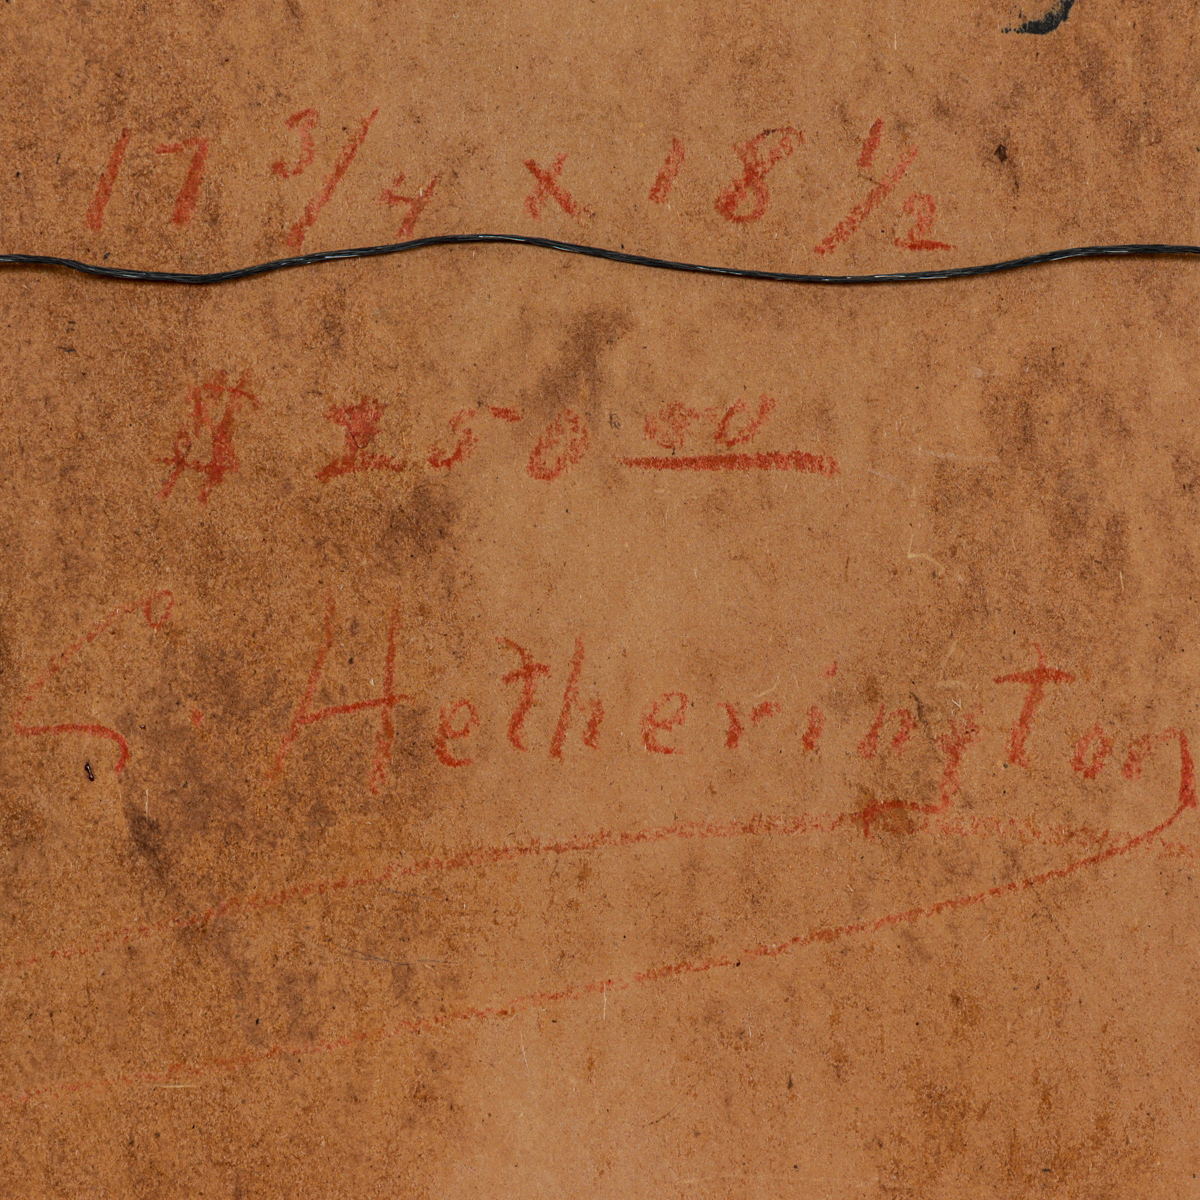 17 3/4 x 18 1/2
$ 250 00
C. Hetherington